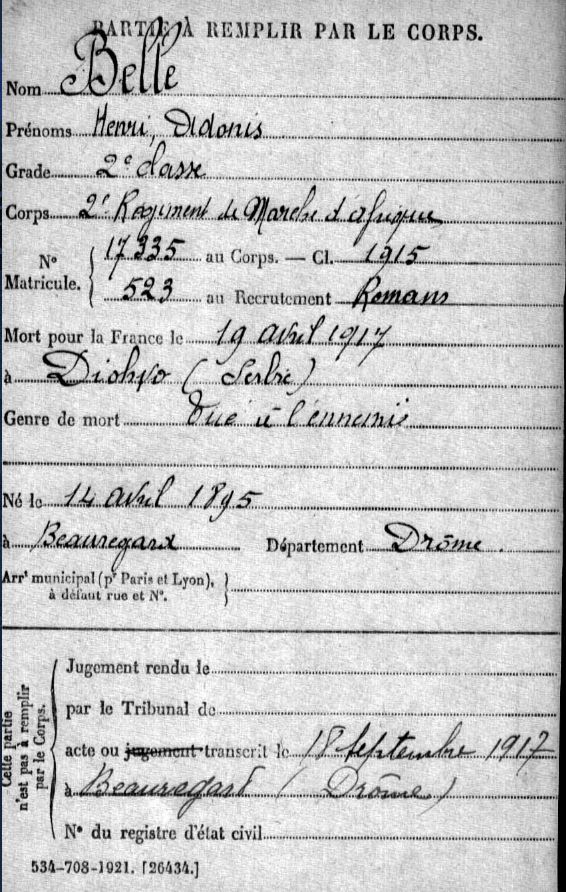 PARTIE À REMPLIR PAR LE CORPS.
Nom Belle
Prénoms Henri, Adonis
Grade 2e classe
Corps 2e Régiment de Marche d'afrique
No Matricule. 17335 au Corps. — Cl. 1915
523 au Recrutement Romans
Mort pour la France le 19 avril 1917
à (Serbie)
Genre de mort Tué à l'ennemi
Né le 14 avril 1895
à Beauregard Département Drôme.
Arrt municipal (pr Paris et Lyon),
à défaut rue et No.
Cette partie
n'est pas à remplir
par le Corps.
Jugement rendu le
par le Tribunal de
acte ou jugement transcrit le 18 Septembre 1917
à Beauregard (Drôme)
No du registre d'état civil
534-708-1921. [26434.]